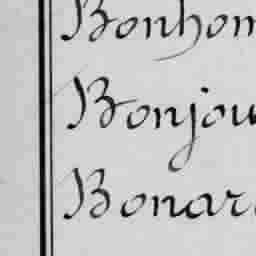 Bonhom
Bonjou
Bonar